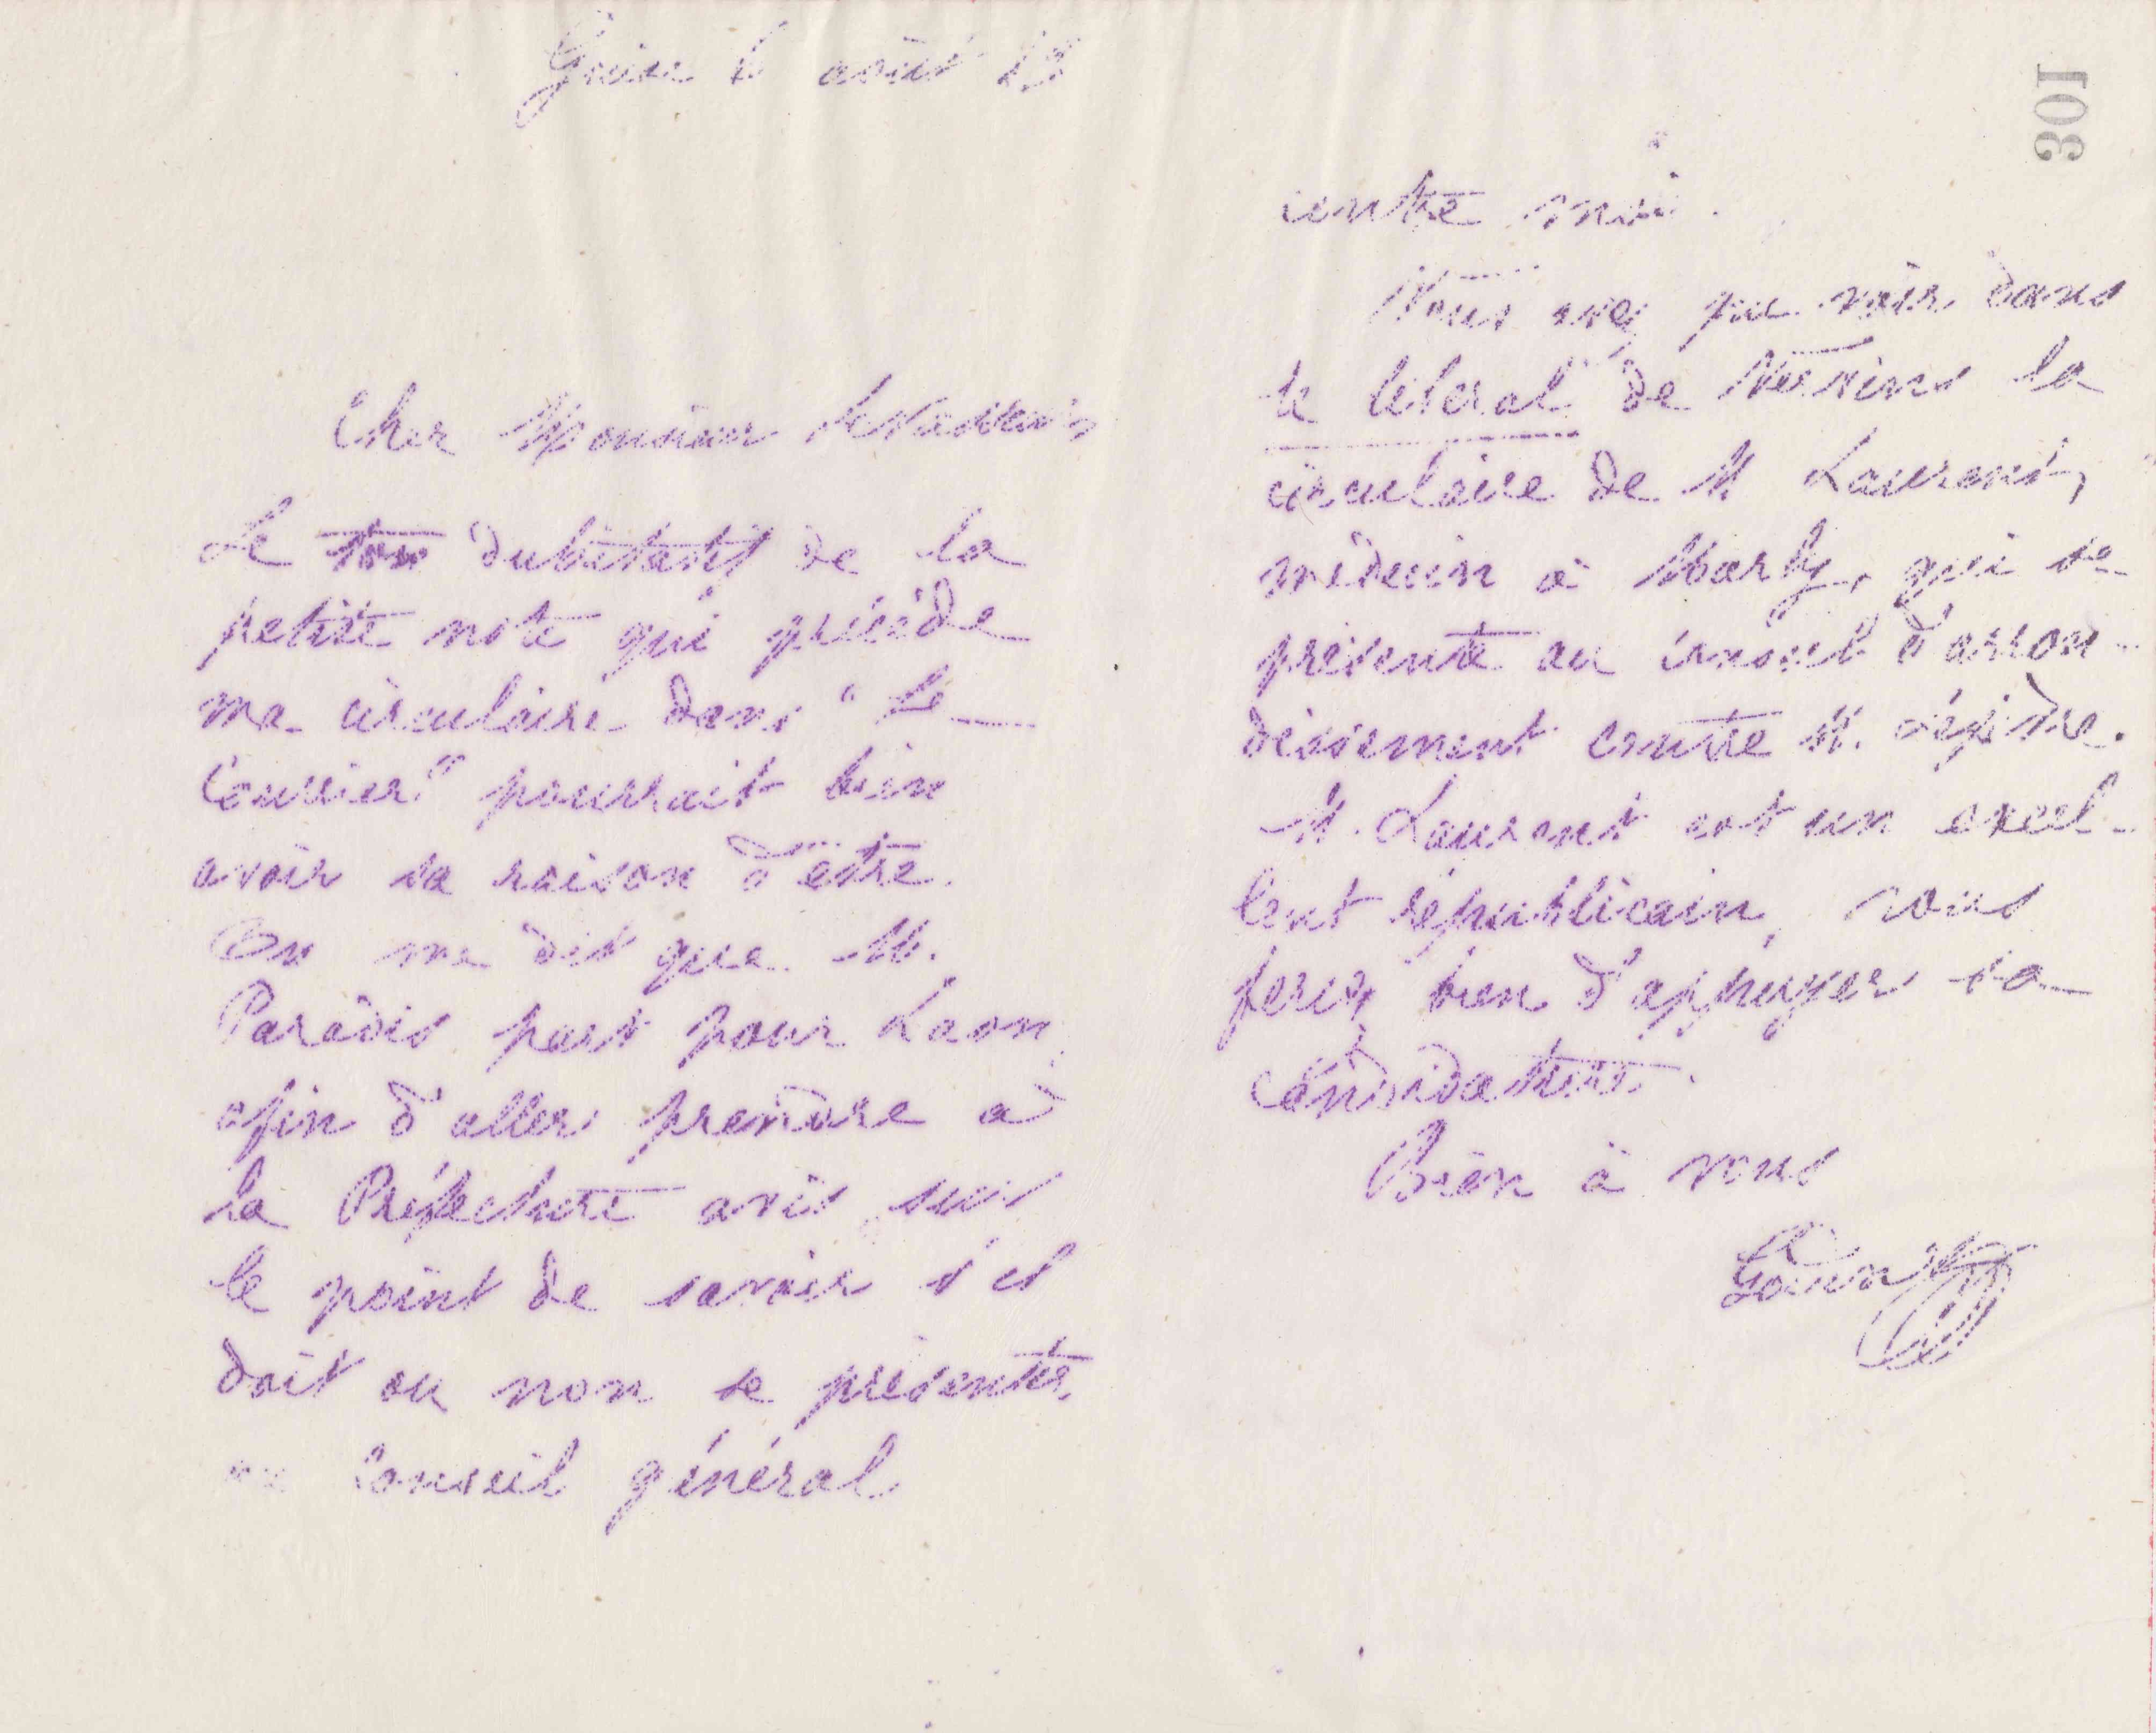 Guise 6 août 83
Cher Monsieur Levasseur
Le ton dubitatif de la
petite note qui précède
ma circulaire dans "Le
Courrier" pourrait bien
avoir sa raison d'être.
On me dit que M.
Paradis part pour Laon,
afin d'aller prendre à
la Préfecture avis sur
le point de savoir s'il
doit ou non se présenter
au Conseil général
301
contre moi.
Vous avez pu voir dans
le libéral de Vervins la
circulaire de M Laurent,
médecin à Marly, qui se
présente au conseil d'arron-
dissement contre M.
M. Laurent est un excel-
lent républicain, vous
ferez bien d'appuyer sa
candidature.
Bien à vous
Godin